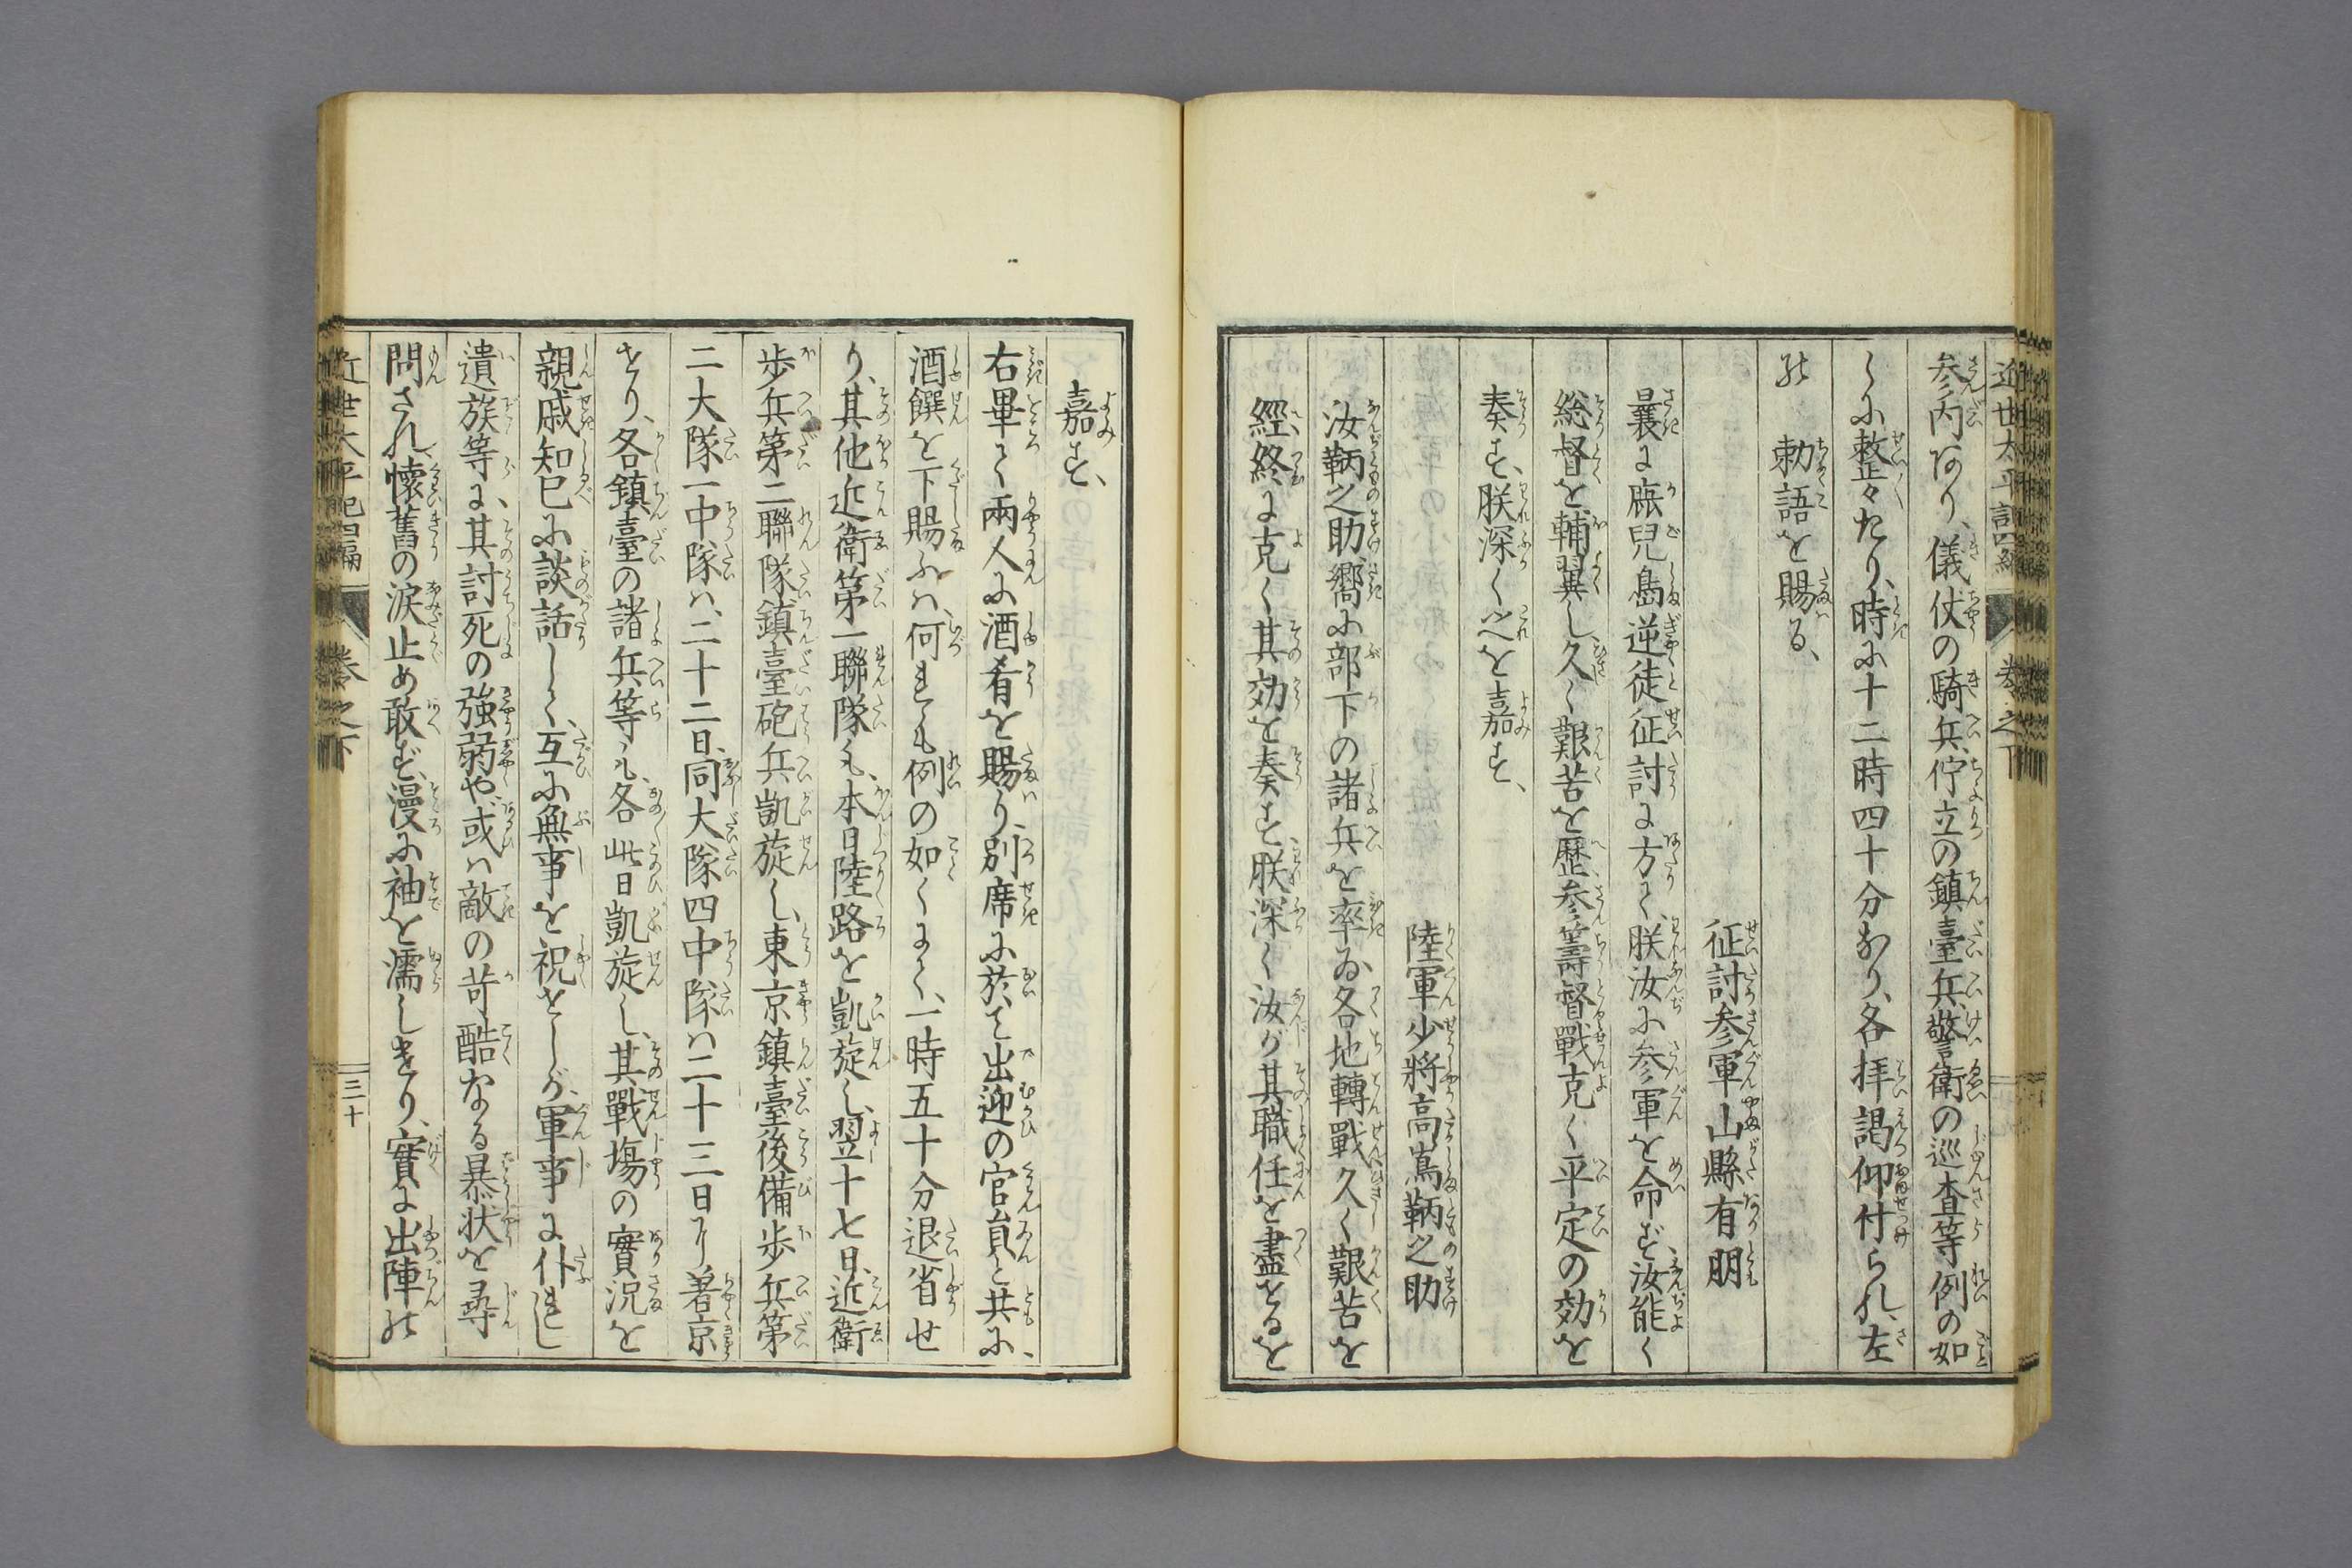 参内あり、儀仗の騎兵、佇立の鎮臺兵、警衛の巡査等例の如
くに整々たり、時に十二時四十分なり、各拝謁仰付られ、左
の 勅語を賜る、
征討参軍山縣有朋
曩に麻兒島逆徒征討に方て、朕汝に参軍を命ず、汝能く
総督を輔翼し久く艱苦を歴、参籌督戰克く平定の効を
奏す、朕深く之を嘉す、
陸軍少將高嶌鞆之助
汝鞆之助、嚮に部下の諸兵を率ゐ、各地轉戰久く艱苦を
經、終に克く其効を奏す、朕深く汝が其職任を盡せるを
嘉す、
右畢て兩人に酒肴を賜り、別席に於て出迎の官員と共に、
酒饌を下賜ふは、何れも例の如くにて、一時五十分退省せ
り、其他近衛第一聯隊も、本日陸路を凱旋し、翌十七日、近衛
歩兵第二聯隊鎮臺砲兵凱旋し、東京鎮臺後備歩兵第
二大隊一中隊は、二十二日、同大隊四中隊は二十三日に着京
せり、各鎮臺の諸兵等も、各此日凱旋し、其戰場の實况を
親戚知已に談話して、互に無事を祝せしが、軍事に仆れし
遺族等は、其討死の強弱や、或は敵の苛酷なる暴状を尋
問され、懷舊の涙止め敢ず、漫に袖を濡しけり、實に出陣の
近世太平記四編
巻之下
三十